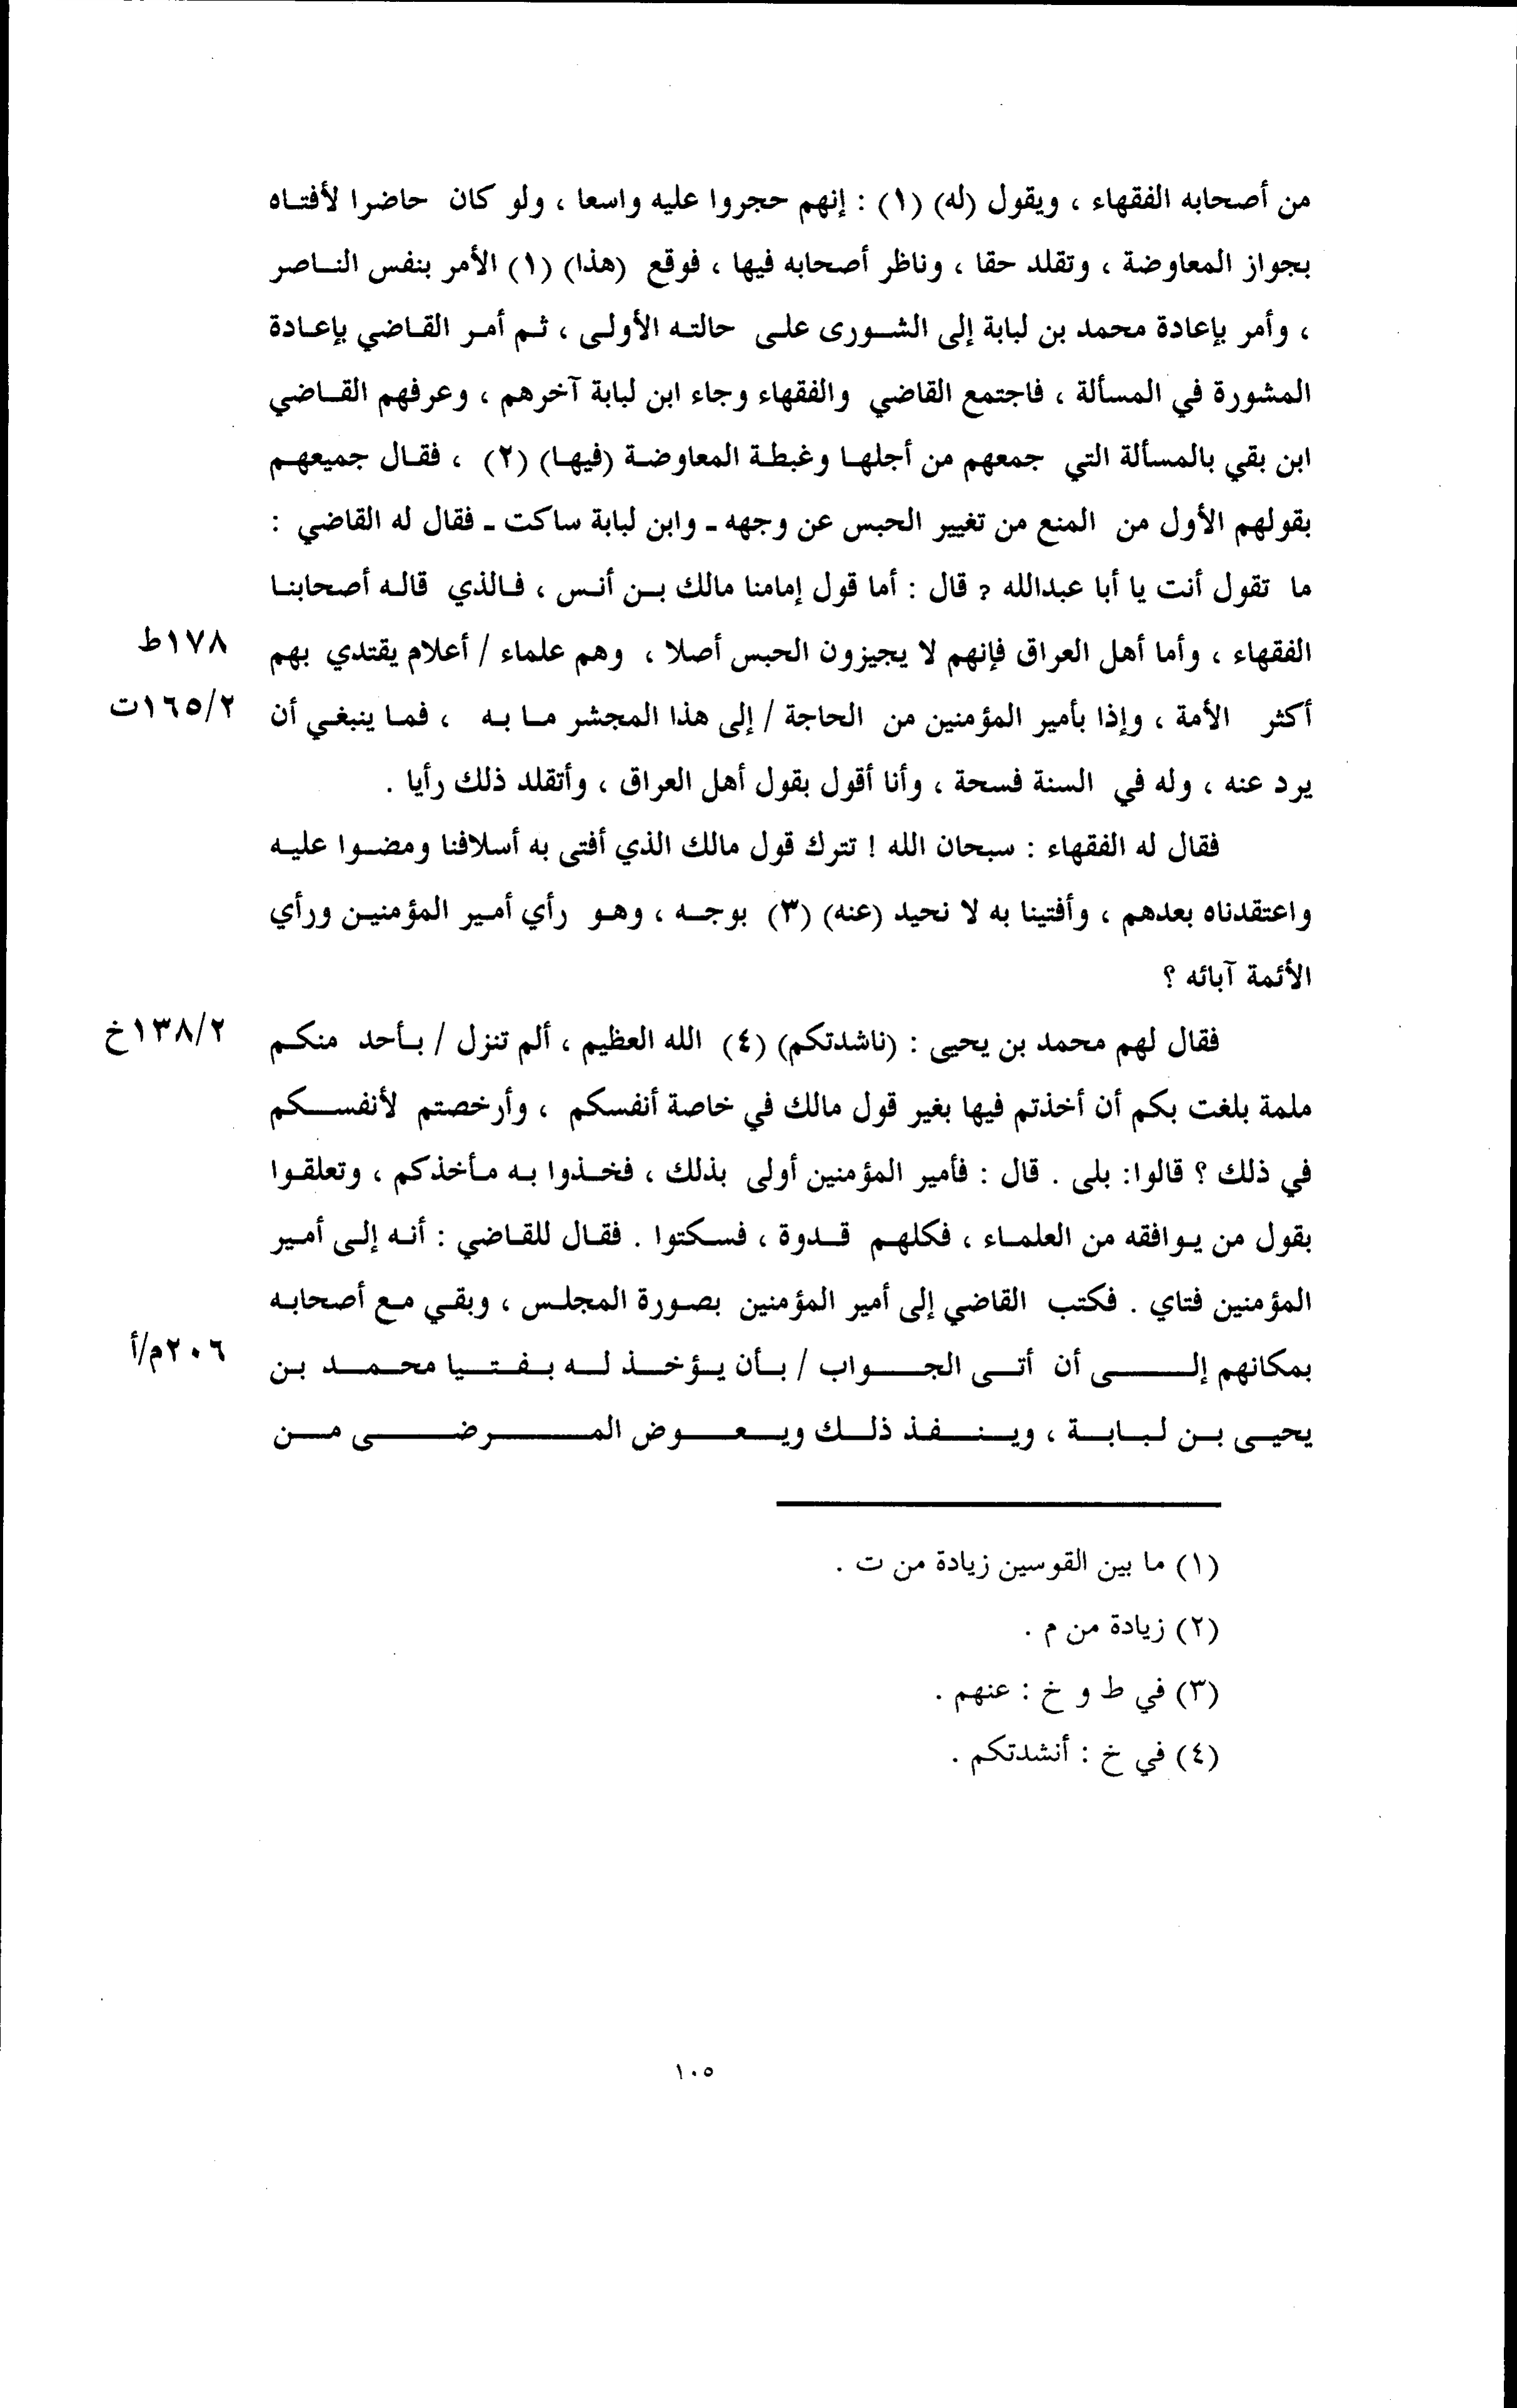 من أصحابه الفقهاء ، ويقول (له) (١) : إنهم حجروا عليه واسعا ، ولو كان حاضرا لأفتاه
بجواز المعاوضة ، وتقلد حقا ، وناظر أصحابه فيها ، فوقع (هذا) (١) الأمر بنفس الناصر
، وأمر بإعادة محمد بن لبابة إلى الشورى على حالته الأولى ، ثم أمر القاضي بإعادة
المشورة في المسألة ، فاجتمع القاضي والفقهاء وجاء ابن لبابة آخرهم ، وعرفهم القاضي
ابن بقي بالمسألة التي جمعهم من أجلها وغبطة المعاوضة (فيها) (٢) ، فقال جميعهم
بقولهم الأول من المنع من تغيير الحبس عن وجهه - وابن لبابة ساكت - فقال له القاضي :
ما تقول أنت يا أبا عبدالله ? قال : أما قول إمامنا مالك بن أنس ، فالذي قاله أصحابنا
الفقهاء ، وأما أهل العراق فإنهم لا يجيزون الحبس أصلا ، وهم علماء / أعلام يقتدي بهم
١٧٨ط
أكثر الأمة ، وإذا بأمير المؤمنين من الحاجة / إلى هذا المجشر ما به ، فما ينبغي أن
١٦٥/٢ت
يرد عنه ، وله في السنة فسحة ، وأنا أقول بقول أهل العراق ، وأتقلد ذلك رأيا .
فقال له الفقهاء : سبحان الله ! تترك قول مالك الذي أفتى به أسلافنا ومضوا عليه
واعتقدناه بعدهم ، وأفتينا به لا نحيد (عنه) (٣) بوجه ، وهو رأي أمير المؤمنين ورأي
الأئمة آبائه ؟
فقال لهم محمد بن يحيى : (ناشدتكم) (٤) الله العظيم ، ألم تنزل / بأحد منكم
١٣٨/٢خ
ملمة بلغت بكم أن أخذتم فيها بغير قول مالك في خاصة أنفسكم ، وأرخصتم لأنفسكم
في ذلك ؟ قالوا: بلى . قال : فأمير المؤمنين أولى بذلك ، فخذوا به مأخذكم ، وتعلقوا
بقول من يوافقه من العلماء ، فكلهم قدوة ، فسكتوا . فقال للقاضي : أنه إلى أمير
المؤمنين فتاي . فكتب القاضي إلى أمير المؤمنين بصورة المجلس ، وبقي مع أصحابه
بمكانهم إلى أن أتى الجواب / بأن يؤخذ له بفتيا محمد بن
٢٠٦م/أ
يحيى بن لبابة ، وينفذ ذلك ويعوض المرضى من
(١) ما بين القوسين زيادة من ت .
(٢) زيادة من م .
(٣) في ط و خ : عنهم .
(٤) في خ : أنشدتكم .
١٠٥